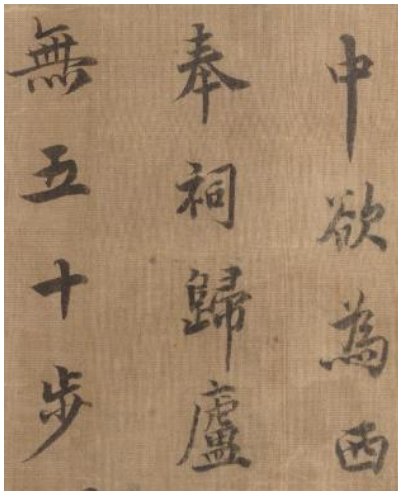 中欲為西
奉祠歸廬
無五十步